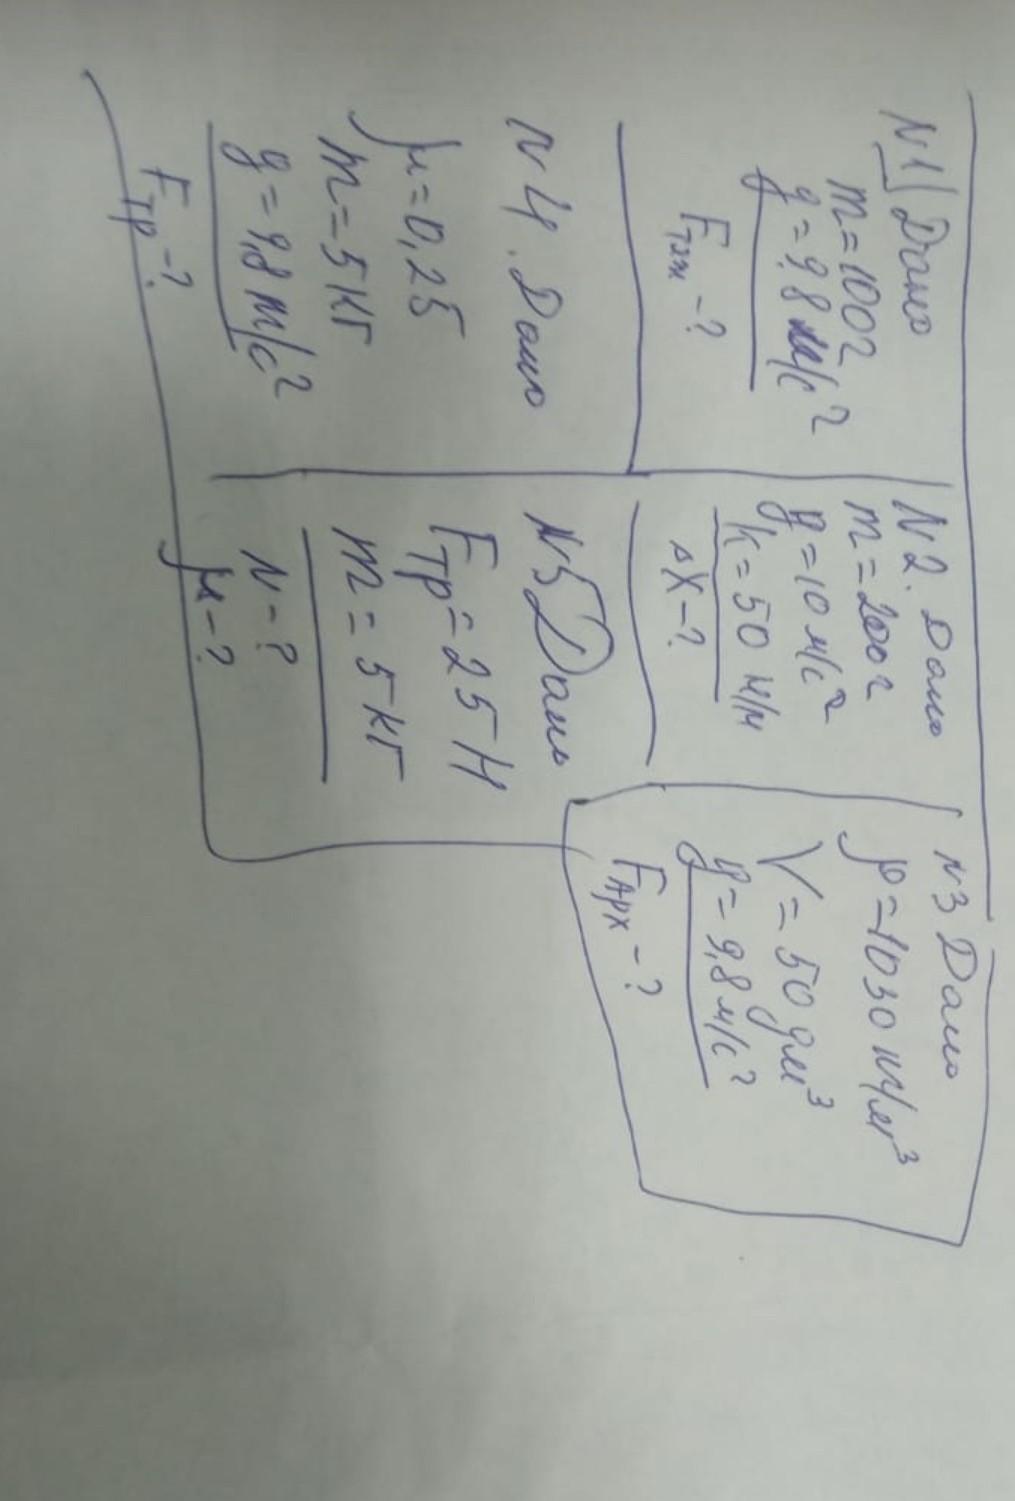 N1 Дано
m=100г
g=9,8 м/с²
Fтяж-?
N2. Дано
m=200г
g=10 м/с²
k=50 Н/м
ΔX-?
N3 Дано
ρ=1030 кг/м³
V=50 дм³
g=9,8 м/с²
FАрх-?
N4. Дано
μ=0,25
m=5кг
g=9,8 м/с²
Fтр-?
N5 Дано
Fтр=25Н
m=5кг
N-?
μ-?